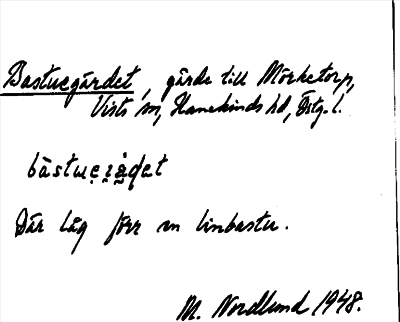 Bastuegärdet, gärde till Mörketorp,
Vists sn, Hanekinds hd, Östg. l.
Där låg förr en linbastu.
M. Nordlund 1948.